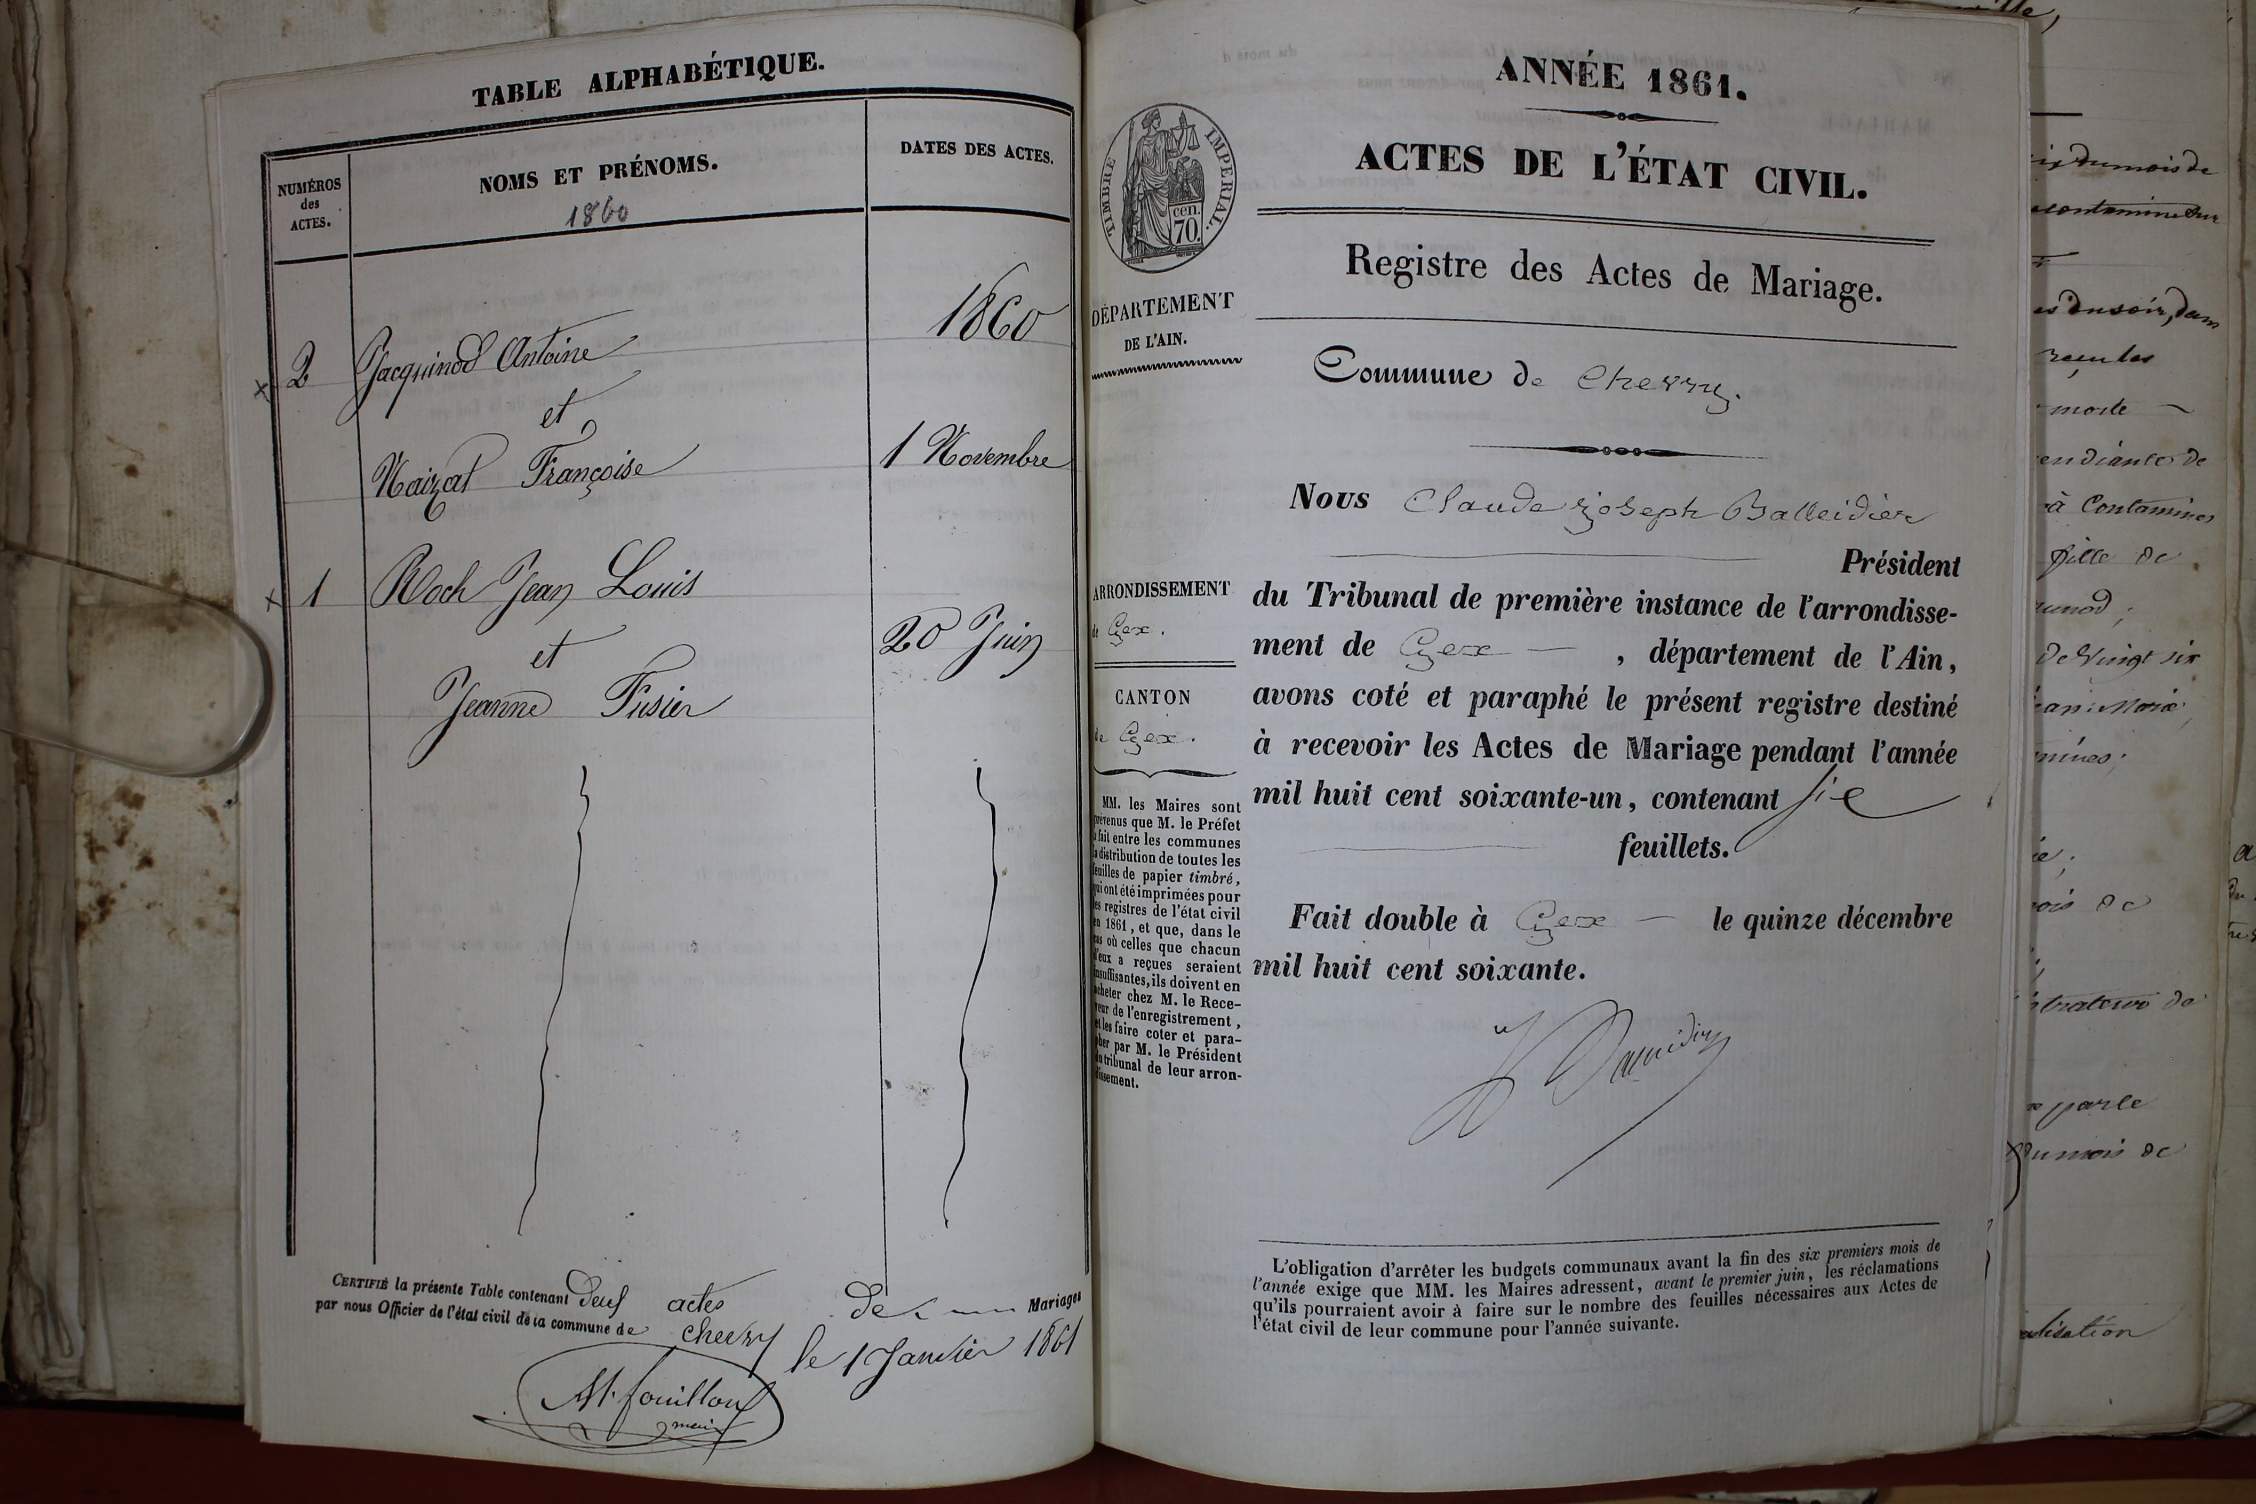 TABLE ALPHABÉTIQUE.
NUMÉROS
des
ACTES.
NOMS ET PRÉNOMS.
1860
DATES DES ACTES.
1860
2 Jacquinod Antoine
et
Naizat Françoise
1 Novembre
1 Roch Jean Louis
et
20 Juin
Jeanne Fusier
CERTIFIÉ la présente Table contenant deux actes de Mariages
par nous Officier de l'état civil de la commune de chevry
le 1 Janvier 1861
fouillon
maire
ANNÉE 1861.
ACTES DE L'ÉTAT CIVIL.
TIMBRE IMPERIAL.
cen.
70
Registre des Actes de Mariage.
DÉPARTEMENT
DE L'AIN.
Commune de Chevry.
Nous Claude Joseph Balleidier
Président
ARRONDISSEMENT
de Gex.
CANTON
de Gex.
du Tribunal de première instance de l'arrondisse-
ment de Gex , département de l'Ain,
avons coté et paraphé le présent registre destiné
à recevoir les Actes de Mariage pendant l'année
mil huit cent soixante-un, contenant six
feuillets.
Fait double à Gex le quinze décembre
mil huit cent soixante.
MM. les Maires sont
prévenus que M. le Préfet
a fait entre les communes
la distribution de toutes les
feuilles de papier timbré,
qui ont été imprimées pour
les registres de l'état civil
en 1861, et que, dans le
cas où celles que chacun
d'eux a reçues seraient
insuffisantes, ils doivent en
acheter chez M. le Rece-
veur de l'enregistrement,
et les faire coter et para-
pher par M. le Président
du tribunal de leur arron-
dissement.
L'obligation d'arrêter les budgets communaux avant la fin des six premiers mois de
l'année exige que MM. les Maires adressent, avant le premier juin, les réclamations
qu'ils pourraient avoir à faire sur le nombre des feuilles nécessaires aux Actes de
l'état civil de leur commune pour l'année suivante.
du mois de
du soir, dans
reçu les
de
à Contamines
fille de
de vingt six
de
parle
du mois de